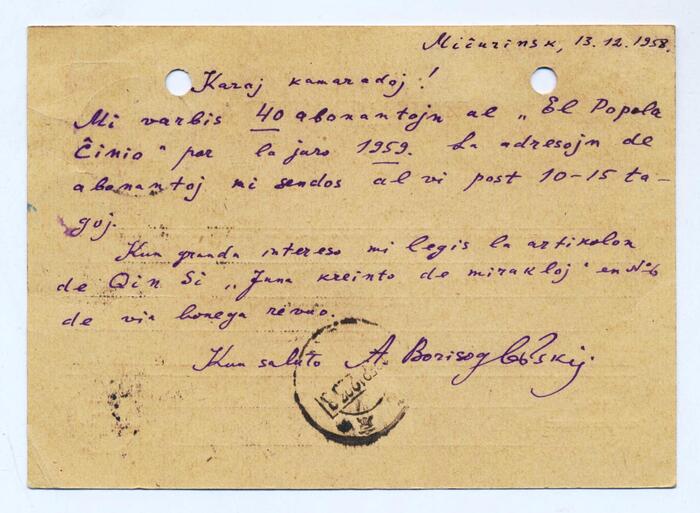 Mičurinsk, 13.12.1958.
Karaj kamaradoj!
Mi varbis 40 abonantojn al „El Popola
Ĉinio“ por la jaro 1959. La adresojn de
abonantoj mi sendos al vi post 10-15 ta-
goj.
Kun granda intereso mi legis la artikolon
de Qin Si „Juna kreinto de mirakloj“ en № 6
de via bonega revuo.
Kun saluto A. Borisoglebskij.